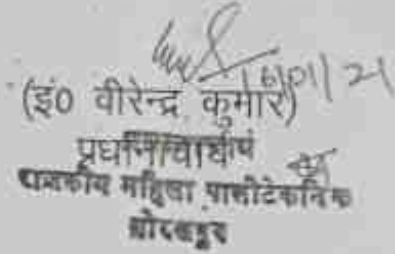 16/01/21
(इं0 वीरेन्द्र कुमार)
प्रधानाचार्य
राजकीय महिला पालीटेकनिक
गोरखपुर